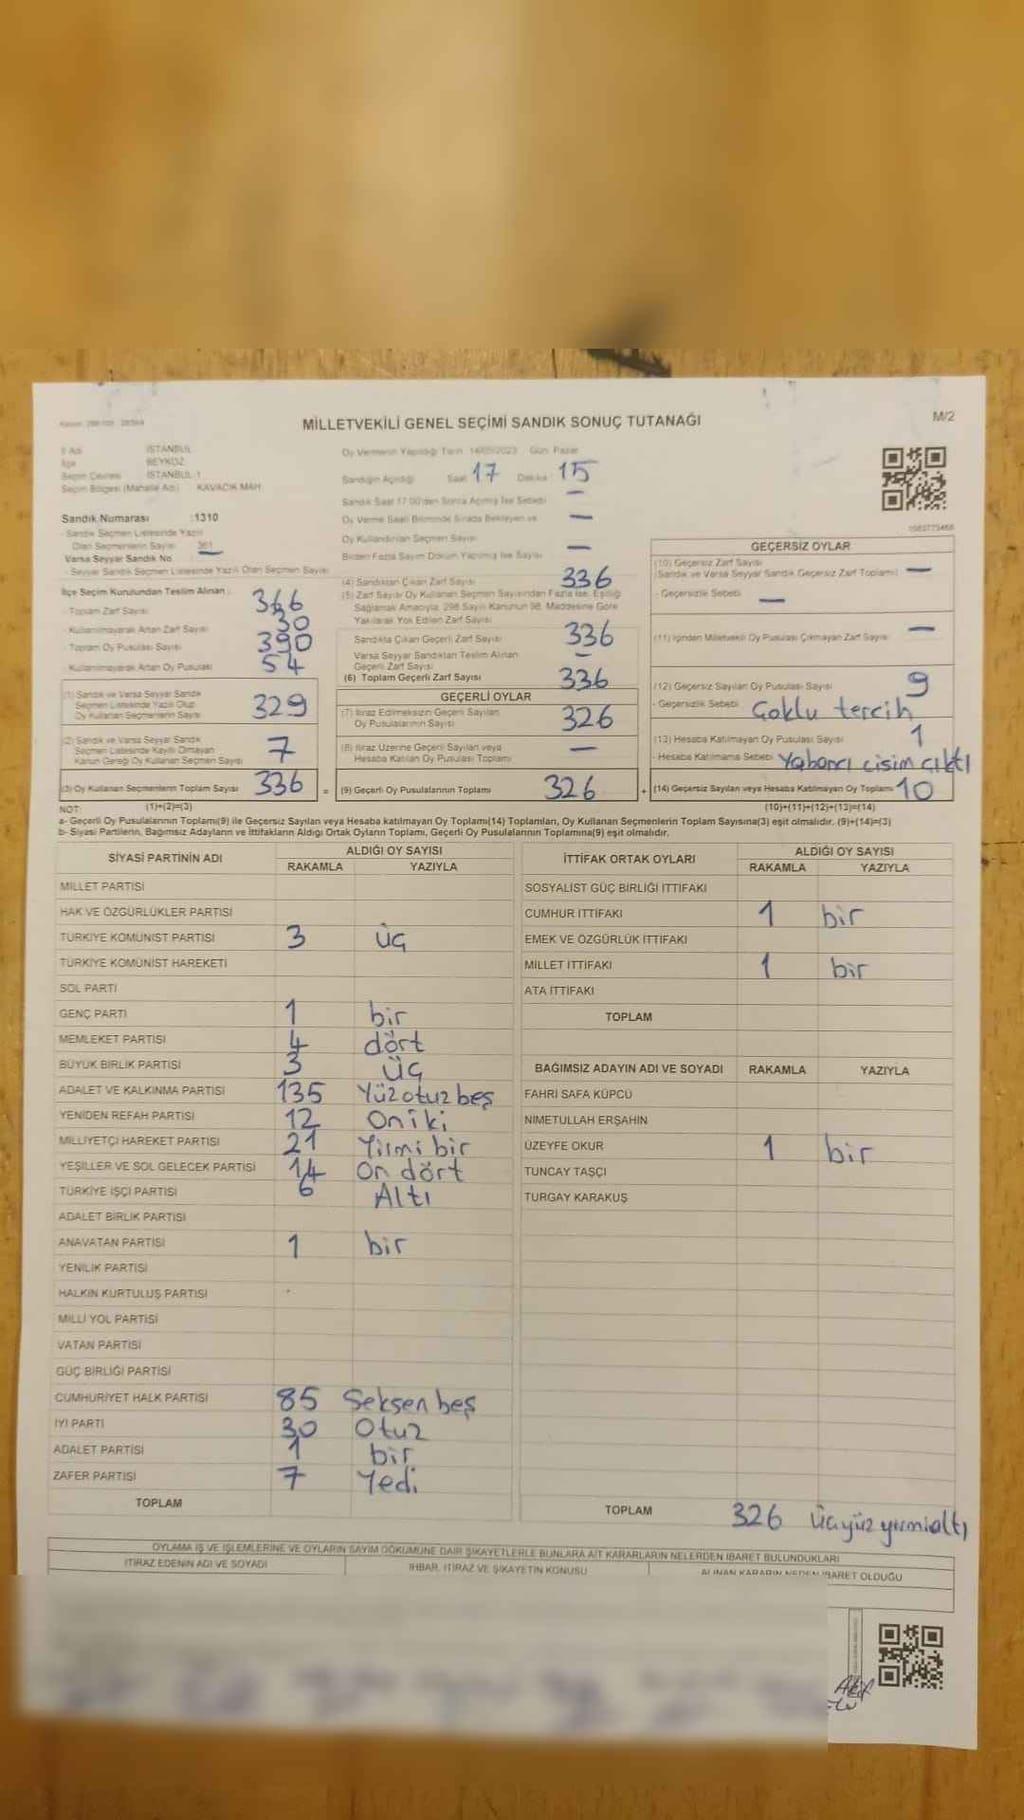 MİLLETVEKİLİ GENEL SEÇİMİ SANDIK SONUÇ TUTANAĞI
M/2
İl Adı İSTANBUL
İlçe BEYKOZ
Seçim Çevresi İSTANBUL 1
Seçim Bölgesi (Mahalle Adı) KAVACIK MAH.
Oy Vermenin Yapıldığı Tarih 14/05/2023 Gün Pazar
Sandığın Açıldığı Saat 17 Dakika 15
Sandık Saat 17:00'den Sonra Açılmış İse Sebebi —
Oy Verme Saati Bitiminde Sırada Bekleyen ve —
Oy Kullandırılan Seçmen Sayısı
Birden Fazla Sayım Döküm Yapılmış İse Sayısı —
Sandık Numarası :1310
- Sandık Seçmen Listesinde Yazılı
Olan Seçmenlerin Sayısı 361
Varsa Seyyar Sandık No —
- Seyyar Sandık Seçmen Listesinde Yazılı Olan Seçmen Sayısı
İlçe Seçim Kurulundan Teslim Alınan :
- Toplam Zarf Sayısı 366
- Kullanılmayarak Artan Zarf Sayısı 30
- Toplam Oy Pusulası Sayısı 390
- Kullanılmayarak Artan Oy Pusulası 54
(1) Sandık ve Varsa Seyyar Sandık
Seçmen Listesinde Yazılı Olup
Oy Kullanan Seçmenlerin Sayısı 329
(2) Sandık ve Varsa Seyyar Sandık
Seçmen Listesinde Kayıtlı Olmayan
Kanun Gereği Oy Kullanan Seçmen Sayısı 7
(3) Oy Kullanan Seçmenlerin Toplam Sayısı 336 =
(4) Sandıktan Çıkan Zarf Sayısı 336
(5) Zarf Sayısı Oy Kullanan Seçmen Sayısından Fazla İse, Eşitliği
Sağlamak Amacıyla, 298 Sayılı Kanunun 98. Maddesine Göre
Yakılarak Yok Edilen Zarf Sayısı
Sandıkta Çıkan Geçerli Zarf Sayısı 336
Varsa Seyyar Sandıktan Teslim Alınan
Geçerli Zarf Sayısı —
(6) Toplam Geçerli Zarf Sayısı 336
GEÇERLİ OYLAR
(7) İtiraz Edilmeksizin Geçerli Sayılan
Oy Pusulalarının Sayısı 326
(8) İtiraz Üzerine Geçerli Sayılan veya
Hesaba Katılan Oy Pusulası Toplamı —
(9) Geçerli Oy Pusulalarının Toplamı 326 +
GEÇERSİZ OYLAR
(10) Geçersiz Zarf Sayısı
(Sandık ve Varsa Seyyar Sandık Geçersiz Zarf Toplamı) —
- Geçersizlik Sebebi —
(11) İçinden Milletvekili Oy Pusulası Çıkmayan Zarf Sayısı —
(12) Geçersiz Sayılan Oy Pusulası Sayısı 9
- Geçersizlik Sebebi Çoklu tercih
(13) Hesaba Katılmayan Oy Pusulası Sayısı 1
- Hesaba Katılmama Sebebi Yabancı cisim çıktı
(14) Geçersiz Sayılan veya Hesaba Katılmayan Oy Toplamı 10
NOT: (1)+(2)=(3)
(10)+(11)+(12)+(13)=(14)
a- Geçerli Oy Pusulalarının Toplamı(9) ile Geçersiz Sayılan veya Hesaba katılmayan Oy Toplamı(14) Toplamları, Oy Kullanan Seçmenlerin Toplam Sayısına(3) eşit olmalıdır. (9)+(14)=(3)
b- Siyasi Partilerin, Bağımsız Adayların ve İttifakların Aldığı Ortak Oyların Toplamı, Geçerli Oy Pusulalarının Toplamına(9) eşit olmalıdır.
SİYASİ PARTİNİN ADI ALDIĞI OY SAYISI
RAKAMLA YAZIYLA
MİLLET PARTİSİ
HAK VE ÖZGÜRLÜKLER PARTİSİ
TÜRKİYE KOMÜNİST PARTİSİ 3 üç
TÜRKİYE KOMÜNİST HAREKETİ
SOL PARTİ
GENÇ PARTİ 1 bir
MEMLEKET PARTİSİ 4 dört
BÜYÜK BİRLİK PARTİSİ 3 üç
ADALET VE KALKINMA PARTİSİ 135 Yüzotuz beş
YENİDEN REFAH PARTİSİ 12 Oniki
MİLLİYETÇİ HAREKET PARTİSİ 21 Yirmi bir
YEŞİLLER VE SOL GELECEK PARTİSİ 14 On dört
TÜRKİYE İŞÇİ PARTİSİ 6 Altı
ADALET BİRLİK PARTİSİ
ANAVATAN PARTİSİ 1 bir
YENİLİK PARTİSİ
HALKIN KURTULUŞ PARTİSİ
MİLLİ YOL PARTİSİ
VATAN PARTİSİ
GÜÇ BİRLİĞİ PARTİSİ
CUMHURİYET HALK PARTİSİ 85 Seksen beş
İYİ PARTİ 30 Otuz
ADALET PARTİSİ 1 bir
ZAFER PARTİSİ 7 Yedi
TOPLAM
İTTİFAK ORTAK OYLARI ALDIĞI OY SAYISI
RAKAMLA YAZIYLA
SOSYALİST GÜÇ BİRLİĞİ İTTİFAKI
CUMHUR İTTİFAKI 1 bir
EMEK VE ÖZGÜRLÜK İTTİFAKI
MİLLET İTTİFAKI 1 bir
ATA İTTİFAKI
TOPLAM
BAĞIMSIZ ADAYIN ADI VE SOYADI RAKAMLA YAZIYLA
FAHRİ SAFA KÜPCÜ
NİMETULLAH ERŞAHİN
ÜZEYFE OKUR 1 bir
TUNCAY TAŞÇI
TURGAY KARAKUŞ
TOPLAM 326 üçyüz yirmialtı
OYLAMA İŞ VE İŞLEMLERİNE VE OYLARIN SAYIM DÖKÜMÜNE DAİR ŞİKAYETLERLE BUNLARA AİT KARARLARIN NELERDEN İBARET BULUNDUKLARI
İTİRAZ EDENİN ADI VE SOYADI İHBAR, İTİRAZ VE ŞİKAYETİN KONUSU ALINAN KARARIN NEDEN İBARET OLDUĞU